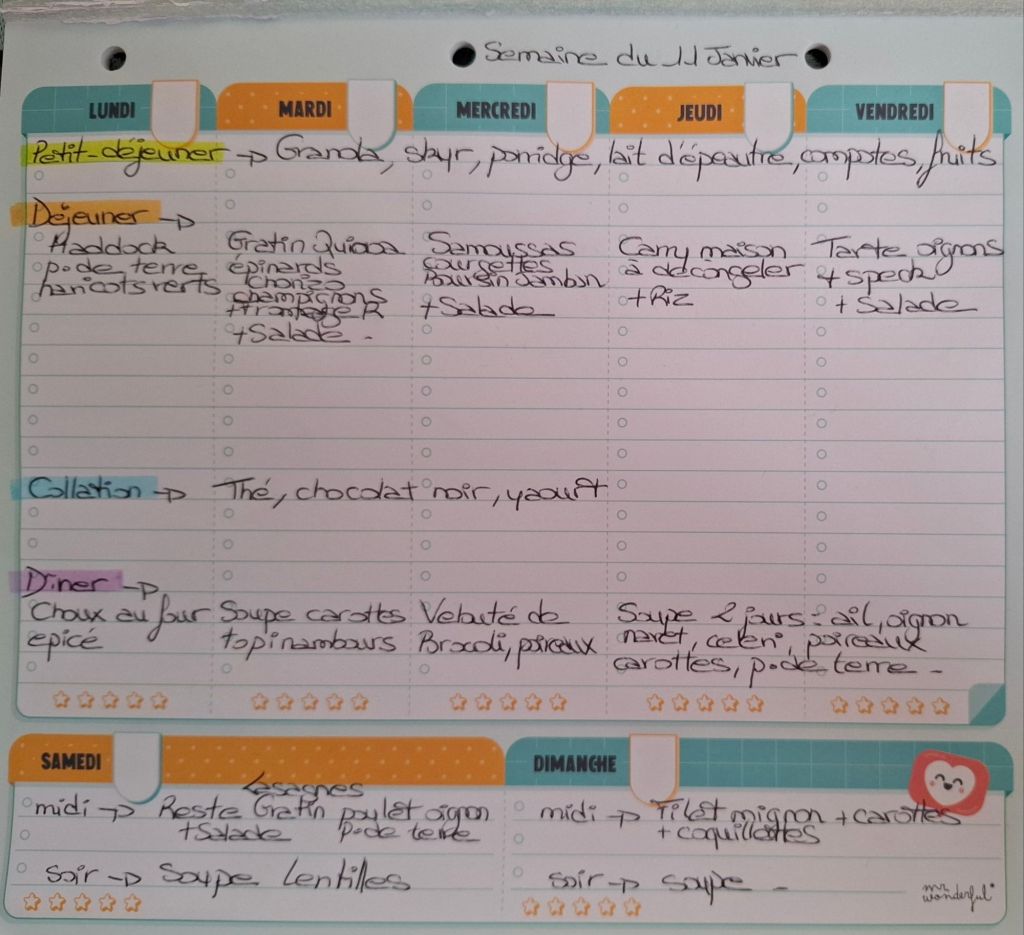 Semaine du 11 Janvier
LUNDI MARDI MERCREDI JEUDI VENDREDI
Petit-déjeuner → Granola, skyr, porridge, lait d'épeautre, compotes, fruits
Déjeuner →
Haddock
p. de terre
haricots verts
Gratin Quinoa
épinards
Chorizo
champignons
+ fromage R
+ Salade.
Samoussas
courgettes
Boursin Jambon
+ Salade
Carry maison
à décongeler
+ Riz
Tarte oignons
+ speck
+ Salade
Collation → Thé, chocolat noir, yaourt
Dîner →
Choux au four
epicé
Soupe carottes
topinambours
Velouté de
Brocoli, poireaux
Soupe 2 jours : ail, oignon
navet, celeri, poireaux
carottes, p. de terre -
SAMEDI
Lasagnes
midi → Reste Gratin poulet oignon
+ Salade p. de terre
soir → Soupe Lentilles
DIMANCHE
midi → Filet mignon + carottes
+ coquillettes
soir → soupe -
mr
wonderful*